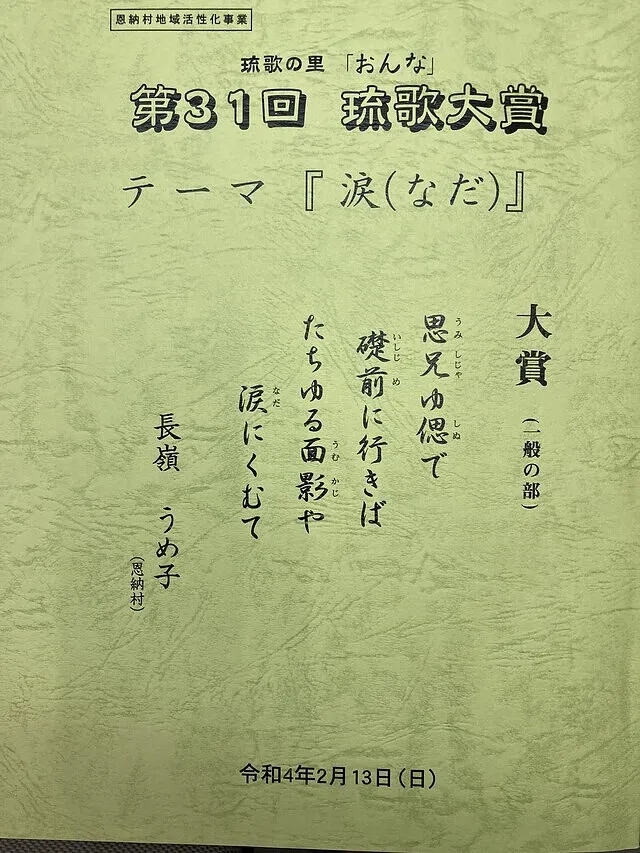 恩納村地域活性化事業
琉歌の里 「おんな」
第31回 琉歌大賞
テーマ『涙(なだ)』
大賞(一般の部)
思兄ゆ偲で
うみ しじゃ しぬ
礎前に行きば
いしじ め
たちゆる面影や
うむ かじ
涙にくむて
なだ
長嶺 うめ子
(恩納村)
令和4年2月13日(日)